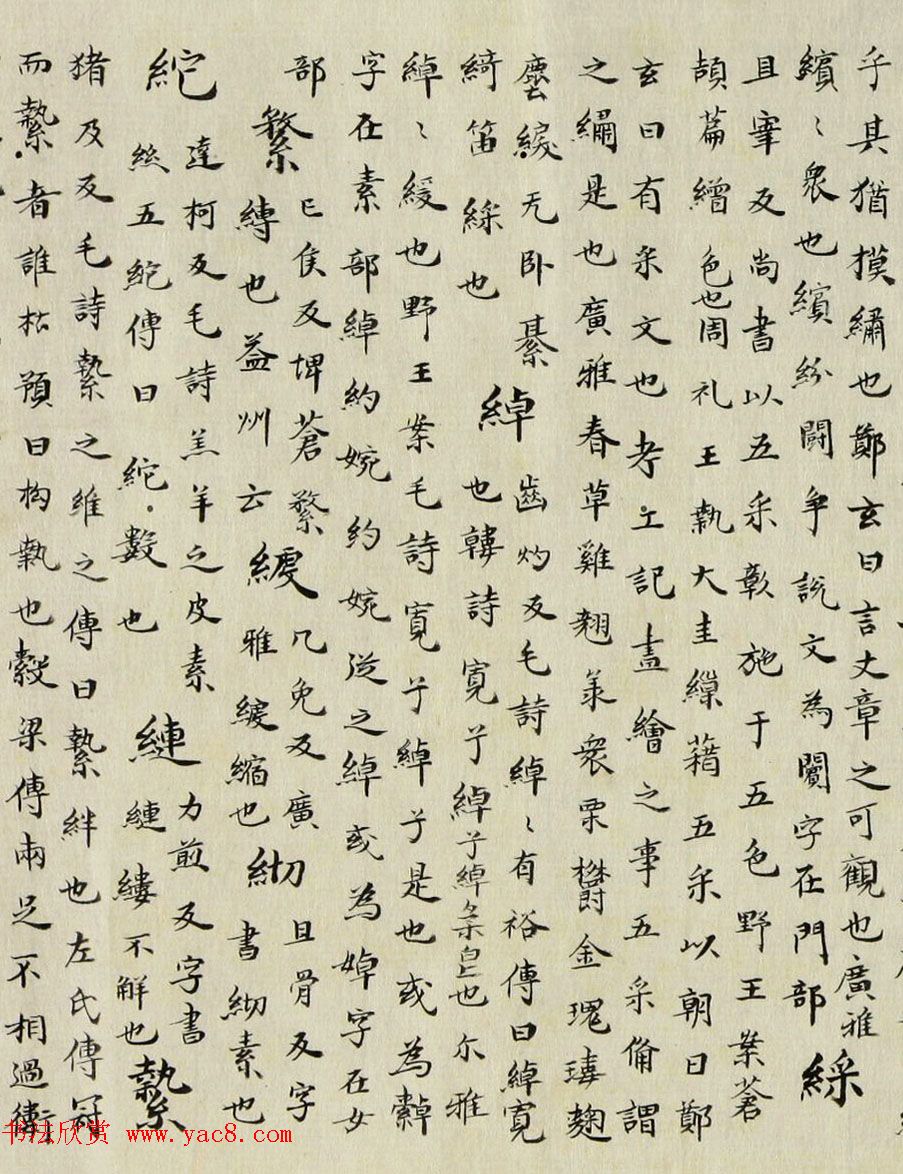 乎其猶摸繡也鄭玄曰言文章之可觀也廣雅
繽〻衆也繽紛鬪争說文為闠字在門部綵
且宰反尚書以五采彰施于五色野王案蒼
頡篇繒色也周礼王執大圭繅藉五采以朝日鄭
玄曰有采文也考工記畫繪之事五采俻謂
之繡是也廣雅春草雞翹蒸衆栗欝金瑰瑇麹
塵綟无卧綦
綺笛綵也
綽
齒灼反毛詩綽〻有裕傳曰綽寛
也韓詩寛兮綽兮綽皃也尔雅
綽〻緩也野王案毛詩寛兮綽兮是也或為繛
字在素部綽約婉約婉從之綽或為婥字在女
部
亡侯反埤蒼
縛也益州云
凡免反廣
雅緩縮也
且骨反字
書紉素也
紽
達柯反毛詩羔羊之皮素
絲五紽傳曰紽數也
縺
力煎反字書
縺縷不解也
縶
猪及反毛詩縶之維之傳曰縶絆也左氏傳冠
而縶者誰杜預曰构執也糓梁傳兩足不相過衛
书法欣赏 www.yac8.com